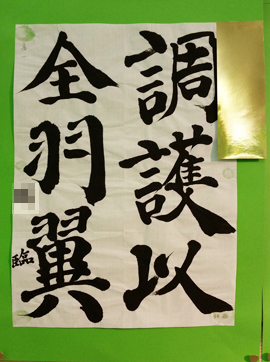 調護以
全羽翼
臨